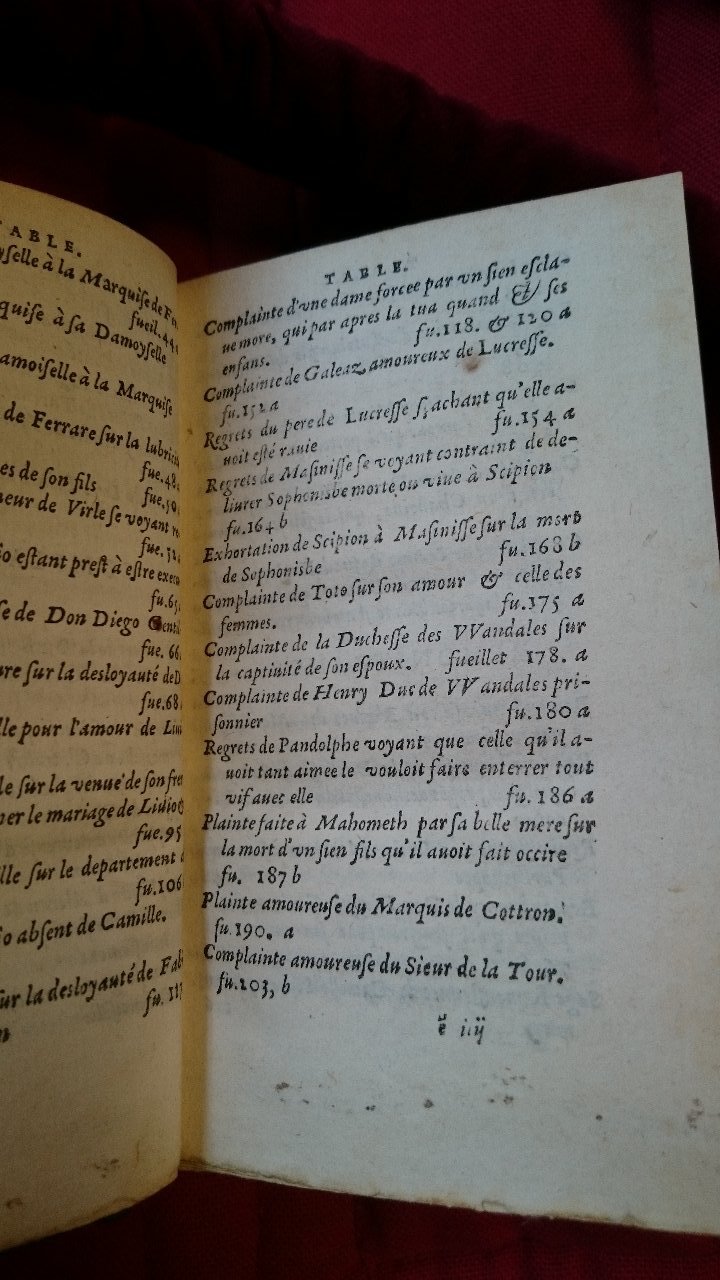 TABLE.
yselle à la Marquise de
fueil.44
quise à sa Damoyselle
amoiselle à la Marquise
de Ferrare sur la
fue.48
es de son fils
fue.50
neur de Virle se voyant
fue.52
o estant prest à estre
fu.65
se de Don Diego
fue. 66
re sur la desloyauté
fue.68
lle pour l'amour de
le sur la venue de son
er le mariage de
fue.95
lle sur le departement
fu.106
o absent de Camille.
ur la desloyauté de
fu.
TABLE.
Complainte d'vne dame forcee par vn sien escla-
ue more, qui par apres la tua quand & ses
enfans. fu.118. & 120 a
Complainte de Galeaz amoureux de Lucresse.
fu.152 a
Regrets du pere de Lucresse sçachant qu'elle a-
uoit esté rauie fu.154 a
Regrets de Masinisse se voyant contraint de de-
liurer Sophonisbe morte ou viue à Scipion
fu.164 b
Exhortation de Scipion à Masinisse sur la mort
de Sophonisbe fu.168 b
Complainte de Toto sur son amour & celle des
femmes. fu.175 a
Complainte de la Duchesse des VVandales sur
la captiuité de son espoux. fueillet 178. a
Complainte de Henry Duc de VVandales pri-
sonnier fu.180 a
Regrets de Pandolphe voyant que celle qu'il a-
uoit tant aimee le vouloit faire enterrer tout
vif auec elle fu. 186 a
Plainte faite à Mahometh par sa belle mere sur
la mort d'vn sien fils qu'il auoit fait occire
fu. 187 b
Plainte amoureuse du Marquis de Cottron.
fu.190. a
Complainte amoureuse du Sieur de la Tour.
fu.203, b
ẽ iiij